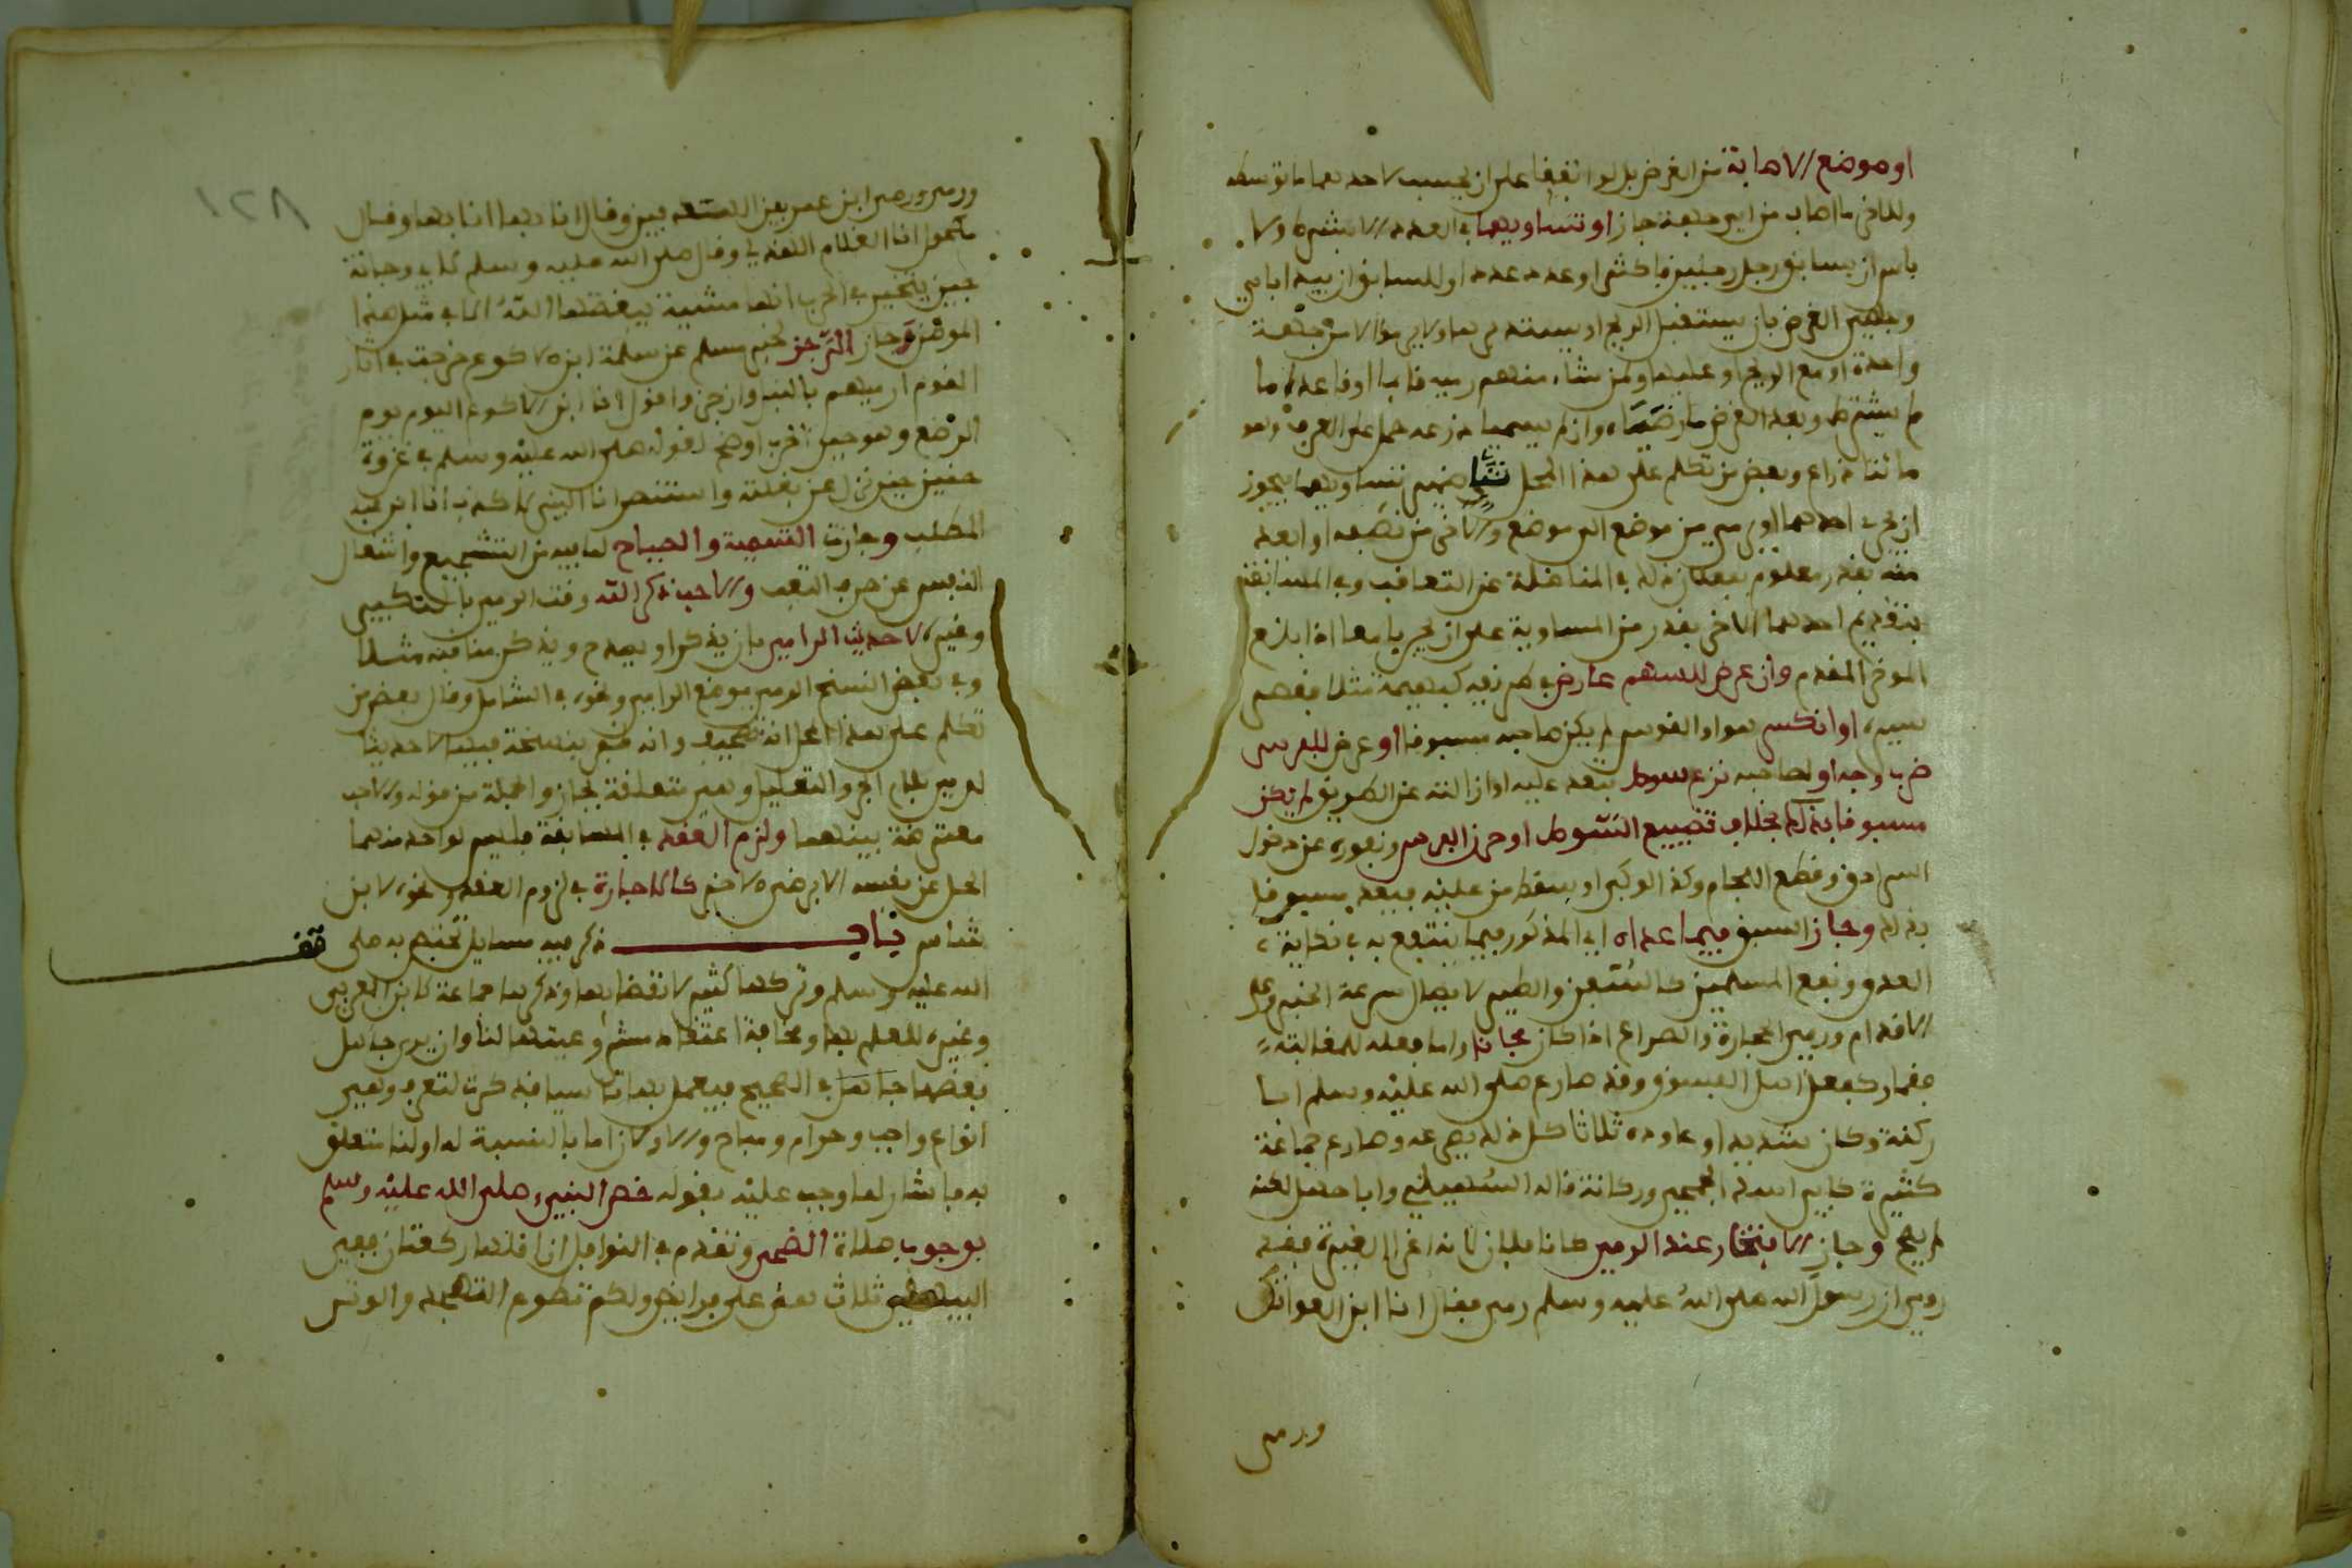 او موضع الاصابة من الغرض بل لو اتفقا على ان يحسب لاحدهما ما توسطه
وللاخر ما اصاب من اي جهة جاز او تساويهما في العدد الا بشرط ولا
باس ان يسابق رجل رجلين فاكثر او عدد عدد او للسابق ان بيد ابا مي
الغرض بان يستقبل الريح او يستدبرها ولا يرموا الا من جهة
واحدة او مع الريح او عليها ولمن شاء منهم رميه قائما او قاعدا ما
لم يشترط وبعد الغرض ما رضياه وان لم يسميا ذرعه حمل على العرف وهو
مائتا ذراع وبعض من تكلم على هذا المحل ضمير تساويهما يجوز
ان يجري احدهما او يرمي من موضع الى موضع والاخر من نصفه او ابعد
منه بقدر معلوم يفعلان ذلك في المناضلة عن التعاقب وفي المسابقة
بتقديم احدهما الاخر بقدر من المساوية على ان يجريا معا اذا بلغ
الموخر المقدم وان عرض للسهم عارض في طريقه كبهيمة مثلا فعطم
سيره او انكسر هو او القوس لم يكن صاحبه مسبوقا او عرض للفرس
ضرب وجه او لصاحبه نزع سوط يتعد عليه او ازالته عن الطريق لم يكن
مسبوقا بذلك بخلاف تضييع السوط او حرن الفرس ونفوره عن دخول
السرادق وقطع اللجام وكذا لو كبا او سقط من عليه فيعد مسبوقا
بذلك وجاز السبق فيما عداه اي المذكور فيما ينتفع به في نكاية
العدو ونفع المسلمين كالسفن والطير لايصال سرعة الخبر وعلى
الاقدام ورمي الحجارة والصراع اذا كان مجانا واما فعله للمغالبة
فقمار كفعل اهل الفسوق وقد صارع صلى الله عليه وسلم ابا
ركانة وكان شديدا وعاوده ثلاثا كل ذلك يصرعه وصارع جماعة
كثيرة كابي اسد الجمحي وركانة قاله السهيلي وابا جهل لكنه
لم يصح وجاز الافتخار عند الرمي كانا فلان لانه اغرا لغيره فقد
روي ان رسول الله صلى الله عليه وسلم رمى فقال انا ابن العواتك
ورمى
١٢٨
ورمى ابن عمر بين الهدفين وقال انا بها انا بها وقال
مكحول انا الغلام الهذلي وقال صلى الله عليه وسلم لابي دجانة
حين يتبختر في الحرب انها مشية يبغضها الله الا في مثل هذا
الموطن وجاز الترجز لخبر مسلم عن سلمة ابن الاكوع خرجت في اثار
القوم ارميهم بالنبل وارتجز واقول انا ابن الاكوع اليوم يوم
الرضع وهو حين اخر اوضح لقوله صلى الله عليه وسلم في غزوة
حنين حين نزل عن بغلته واستنصر انا النبي لا كذب انا ابن عبد
المطلب وجازت التسمية والصياح لما فيه من التشجيع واشغال
النفس عن التعب والاحب ذكر الله وقت الرمي بالتكبير
وغيره لا حديث الرامي بان يذكر او يمدح ويذكر مناقبه مثلا
وفي بعض النسخ الرمي موضع الرامي ونحوه في الشامل وقال بعض من
تكلم على هذا المحل انه تصحيف وانه ظفر بنسخة فيها لاحديثا
لرمي بلام الجر والتعليل وهي متعلقة بجاز والجملة من قوله والاحب
معترضة بينهما ولزم العقد في المسابقة فليس لواحد منهما
الحل عن نفسه الا برضى الاخر كالاجارة في لزوم العقد ونحوه لابن
شاس باب ذكر فيه مسايل تختص به صلى قف
الله عليه وسلم وتركها كثير لانقضائها وذكرها جماعة كابن العربي
وغيره للعلم بها ومخافة اعتقاد مشروعيتها لنا وان يرى جاهل
بعضها جاهل في الصحيح فيعمل بها تاسيا فذكرت لتعرف وهي
انواع واجب وحرام ومباح والاولان اما بالنسبة له او لنا متعلق
به فاشار لما وجب عليه بقوله خص النبي صلى الله عليه وسلم
بوجوب صلاة الضحى وتقدم في النوافل ان اقلها ركعتان ففي
البيهقي ثلاث هن علي فرائض ولكم تطوع التهجد والوتر